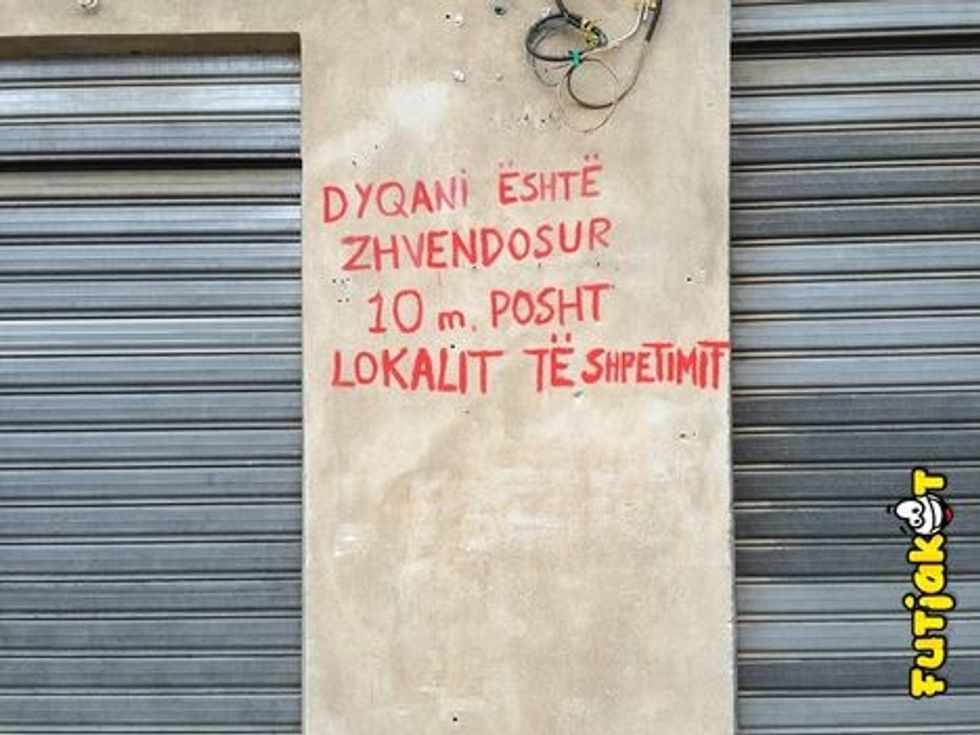 DYQANi ËSHTË
ZHVENDOSUR
10 m. POSHT
LOKALIT TË SHPETIMIT
FUTJAKOT